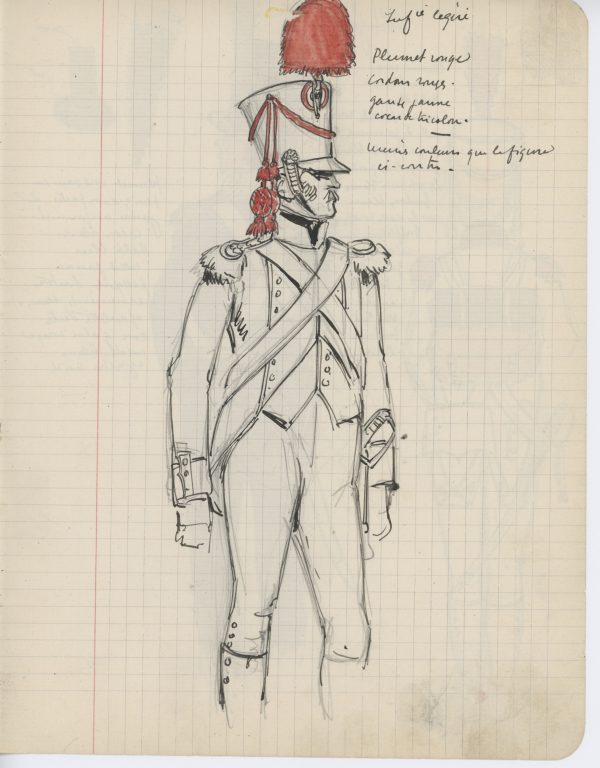 Inf ie légère
Plumet rouge
cordons rouges.
ganse jaune
cocarde tricolore.
mêmes couleurs que la figure
ci-contre.